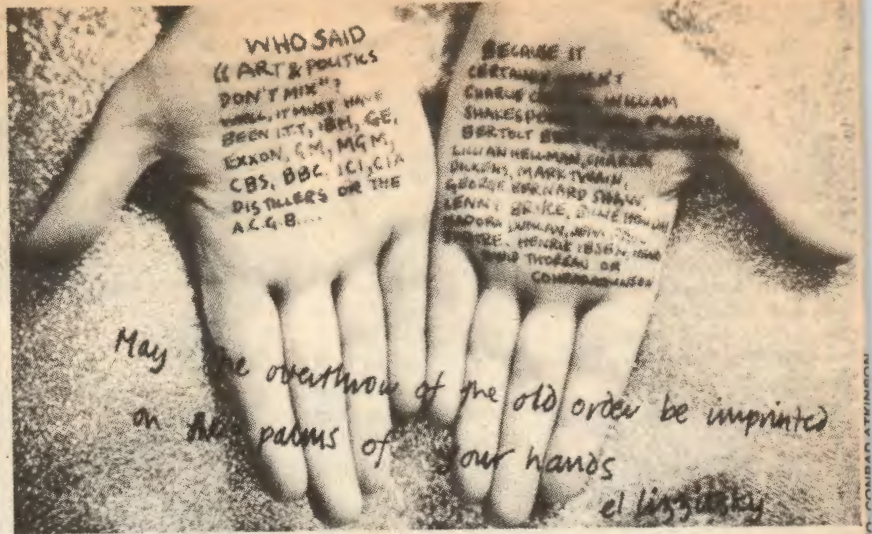 WHO SAID
"ART & POLITICS
DON'T MIX"?
WELL, IT MUST HAVE
BEEN I.T.T, IBM, GE,
EXXON, GM, MGM,
CBS, BBC, ICI, CIA
DISTILLERS OR THE
A.C.G.B....
BECAUSE IT
CERTAINLY WASN'T
CHARLIE WILLIAM
PICASSO,
BERTOLT
LILLIAN HELLMAN, CHARLES
DICKENS, MARK TWAIN,
GEORGE BERNARD SHAW,
LENNY BRUCE,
ISADORA DUNCAN,
HENRIK IBSEN,
DAVID THOREAU OR
CONRAD ATKINSON
May the overthrow of the old order be imprinted
on the palms of your hands
el lizzitsky
CONRAD ATKINSON